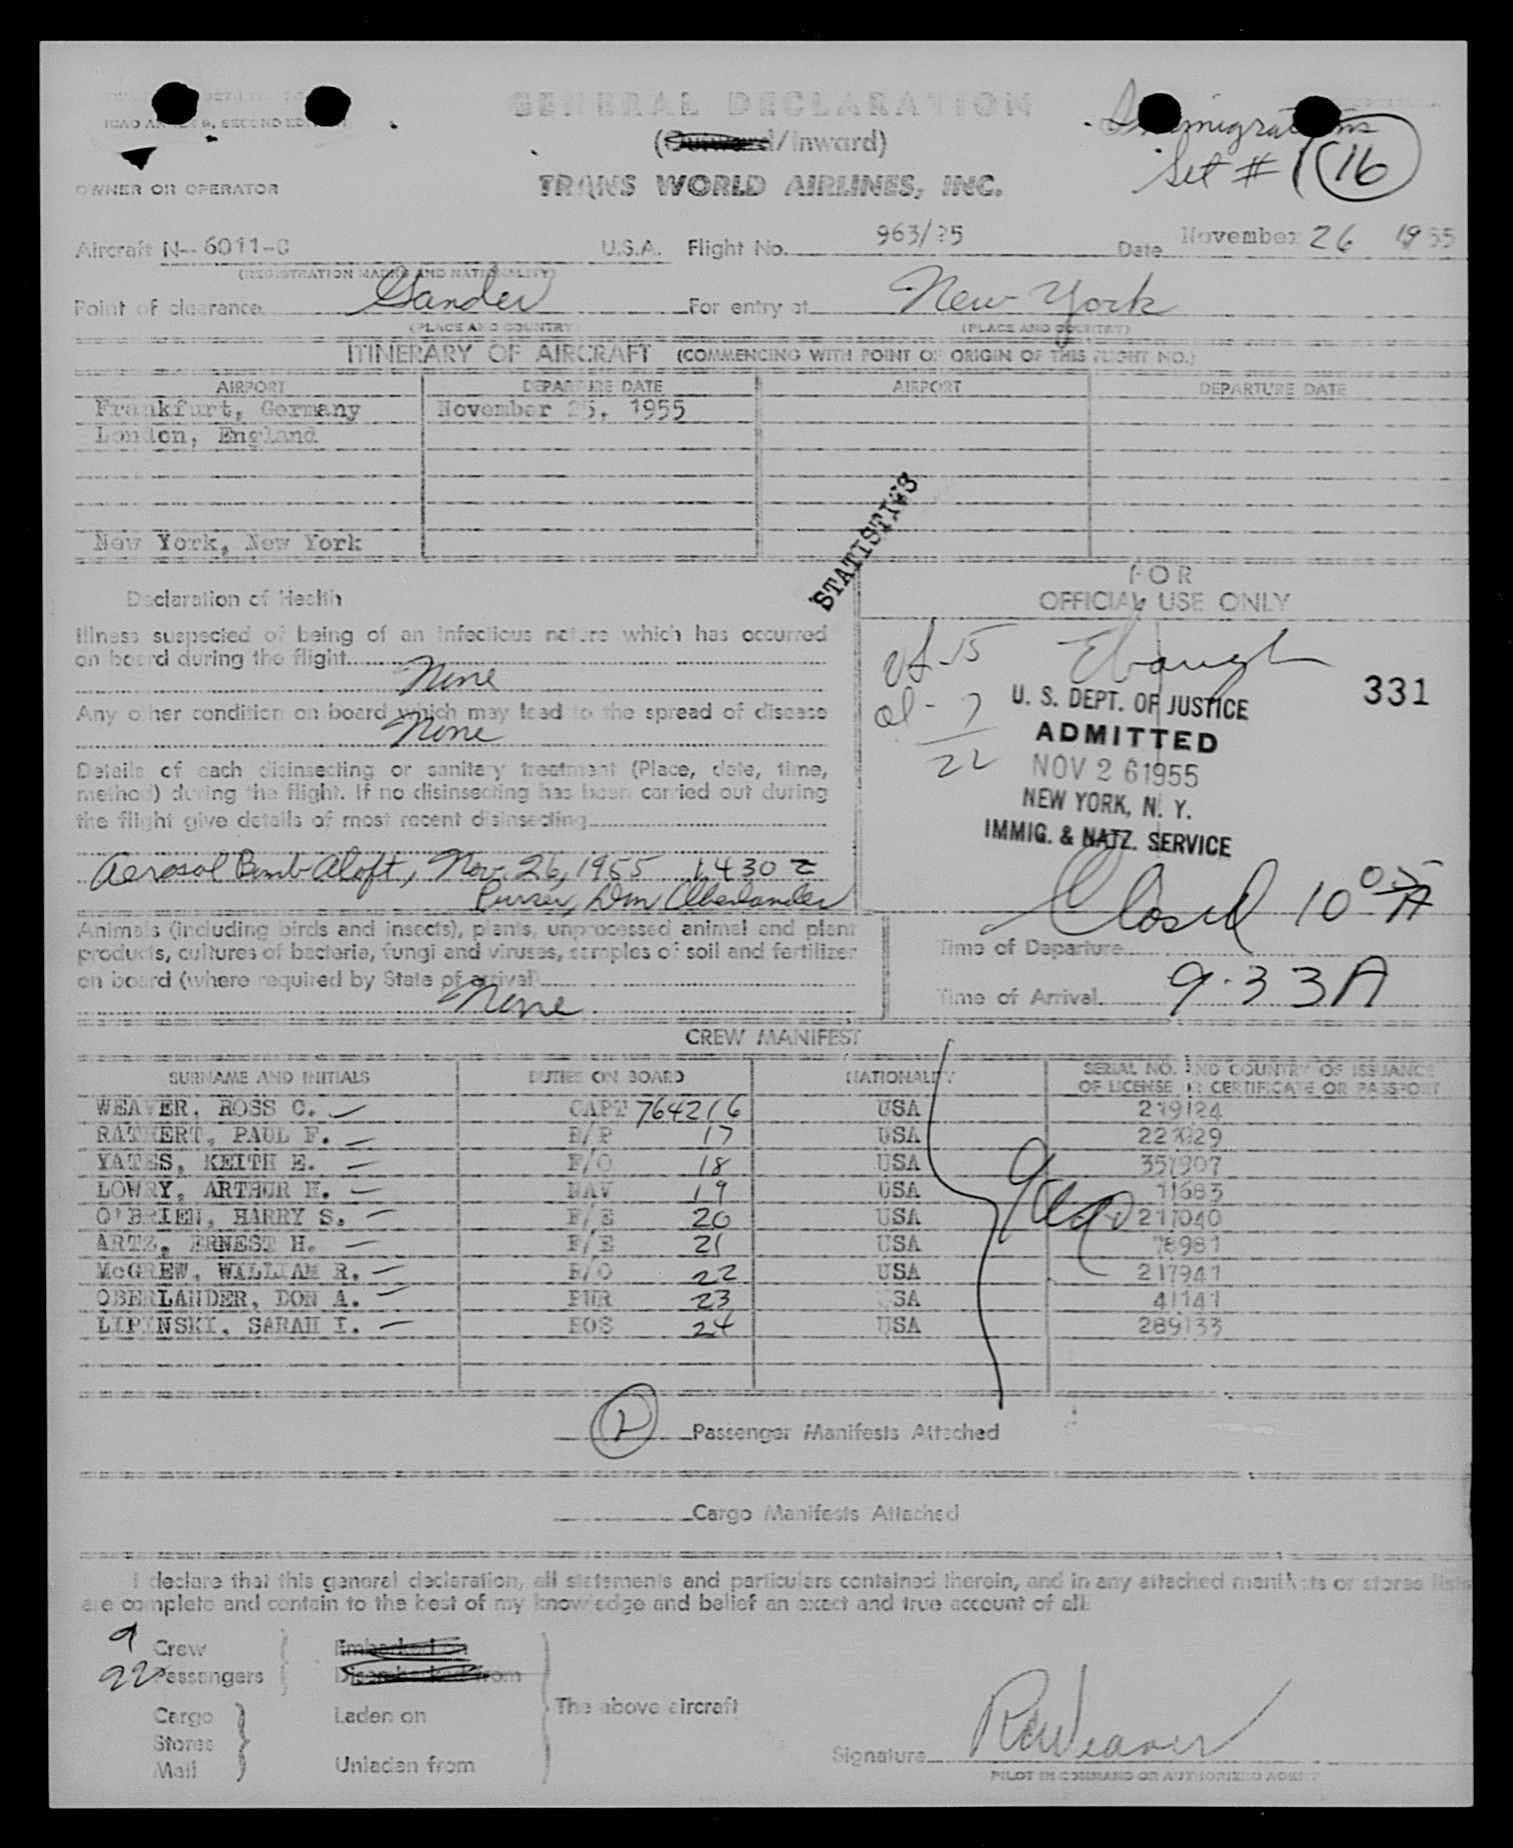 ICAO ANNEX 9, SECOND EDITION
GENERAL DECLARATION
(Outward/Inward)
Immigrations
Set # 1 16
OWNER OR OPERATOR
TRANS WORLD AIRLINES, INC.
Aircraft N-- 6011-C U.S.A. Flight No. 963/25 Date November 26 1955
(REGISTRATION MARKS AND NATIONALITY)
Point of clearance Gander For entry at New York
(PLACE AND COUNTRY) (PLACE AND COUNTRY)
ITINERARY OF AIRCRAFT (COMMENCING WITH POINT OF ORIGIN OF THIS FLIGHT NO.)
AIRPORT DEPARTURE DATE AIRPORT DEPARTURE DATE
Frankfurt, Germany November 25, 1955
London, England
New York, New York
STATISTICS
Declaration of Health
Illness suspected of being of an infectious nature which has occurred
on board during the flight
None
Any other condition on board which may lead to the spread of disease
None
Details of each disinsecting or sanitary treatment (Place, date, time,
method) during the flight. If no disinsecting has been carried out during
the flight give details of most recent disinsecting
Aerosol Bomb Aloft, Nov. 26, 1955 1430 Z
Purser, Don Oberlander
Animals (including birds and insects), plants, unprocessed animal and plant
products, cultures of bacteria, fungi and viruses, samples of soil and fertilizer
on board (where required by State of arrival)
None
FOR
OFFICIAL USE ONLY
15
7
22
331
U. S. DEPT. OF JUSTICE
ADMITTED
NOV 26 1955
NEW YORK, N. Y.
IMMIG. & NATZ. SERVICE
Closed 10 05 A
Time of Departure
Time of Arrival 9.33A
CREW MANIFEST
SURNAME AND INITIALS DUTIES ON BOARD NATIONALITY SERIAL NO. AND COUNTRY OF ISSUANCE
OF LICENSE OR CERTIFICATE OR PASSPORT
WEAVER, ROSS C. CAPT 764216 USA 219124
RATHERT, PAUL F. F/P 17 USA
YATES, KEITH E. F/O 18 USA 357907
LOWRY, ARTHUR F. NAV 19 USA 11683
O'BRIEN, HARRY S. F/E 20 USA 217040
ARTZ, ERNEST H. F/E 21 USA 78981
McGREW, WILLIAM R. R/O 22 USA 217941
OBERLANDER, DON A. PUR 23 USA 41141
LIPINSKI, SARAH I. HOS 24 USA 289133
2 Passenger Manifests Attached
Cargo Manifests Attached
I declare that this general declaration, all statements and particulars contained therein, and in any attached manifests or stores lists
are complete and contain to the best of my knowledge and belief an exact and true account of all:
9 Crew Embarked on
22 Passengers Disembarked from
The above aircraft
Cargo Laden on
Stores
Mail Unladen from
Signature RCWeaver
PILOT IN COMMAND OR AUTHORIZED AGENT